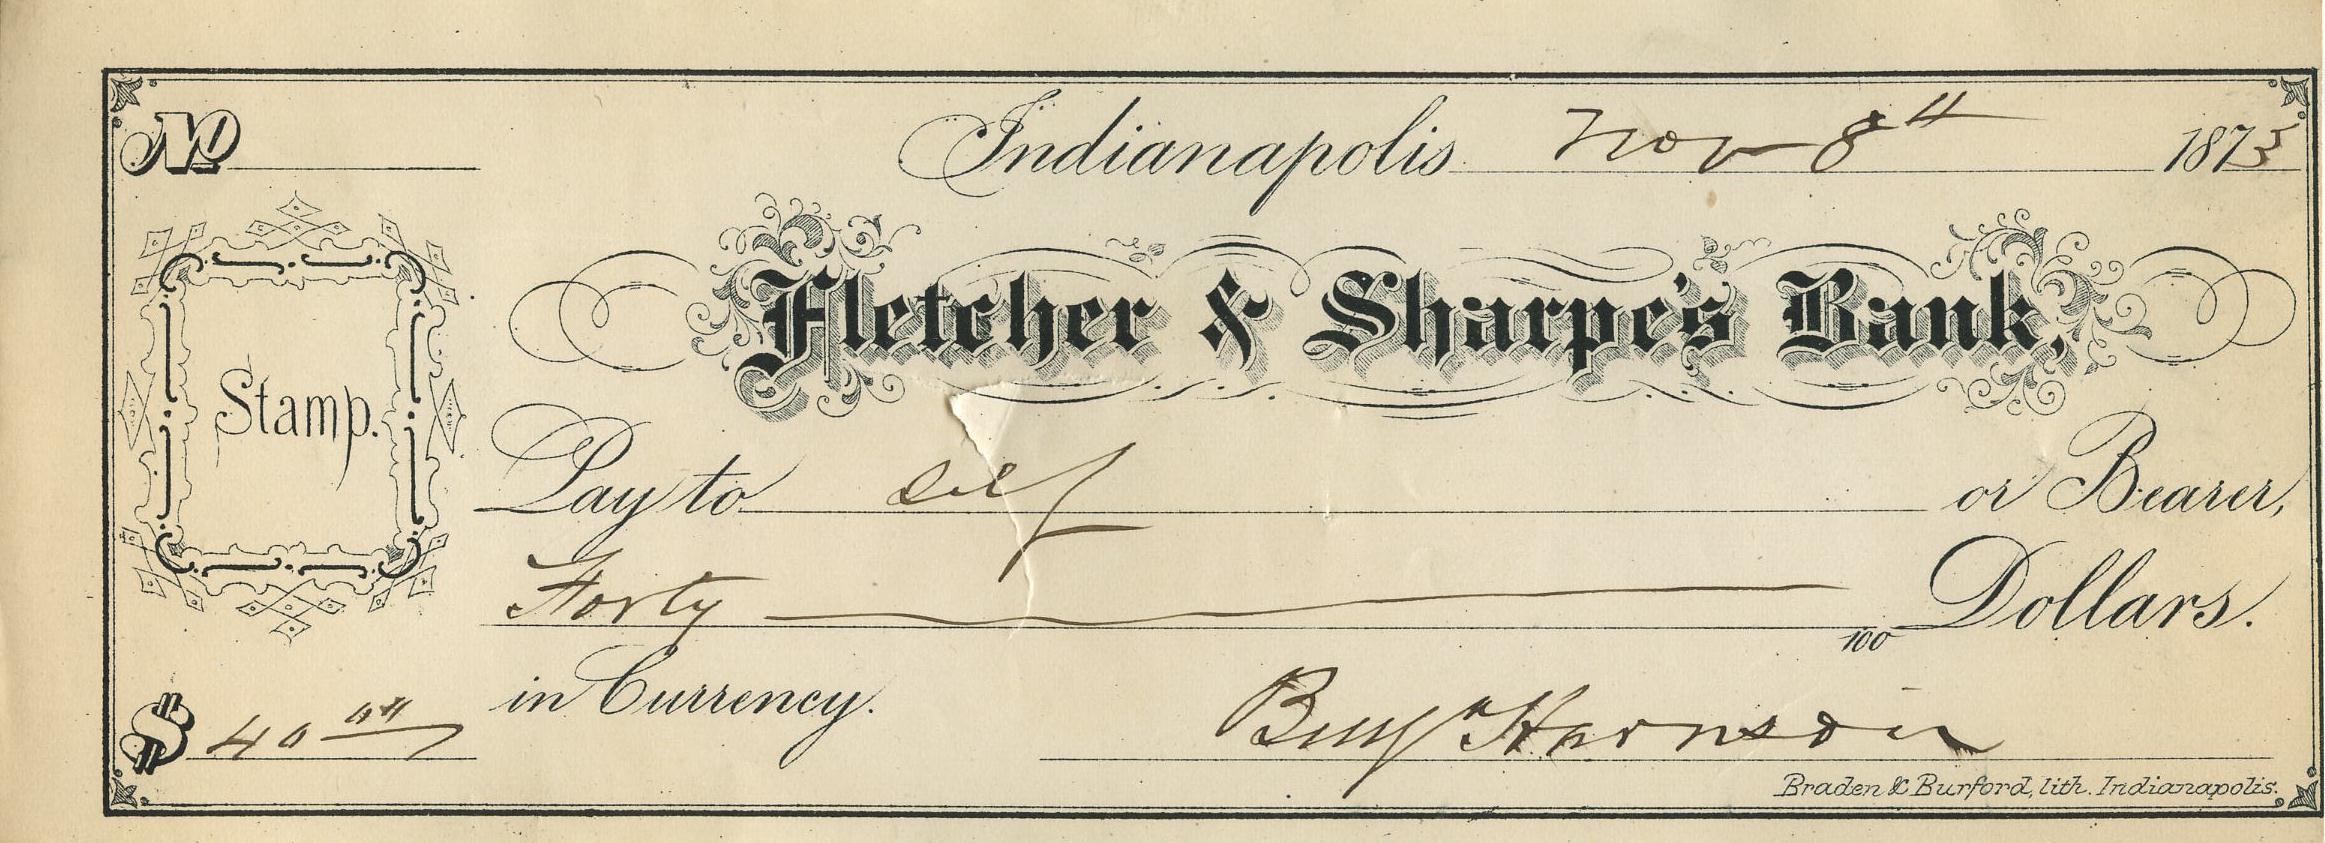 No
Indianapolis Nov 8th 1873
Fletcher & Sharpe's Bank,
Stamp.
Pay to self or Bearer,
Forty 100 Dollars.
in Currency.
$ 40 00
Benj Harrison
Braden & Burford, lith. Indianapolis.